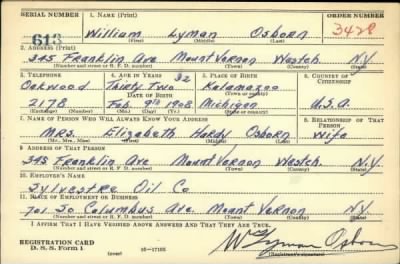 SERIAL NUMBER 1. NAME (Print) ORDER NUMBER
613 William Lyman Osborn 3428
(First) (Middle) (Last)
2. ADDRESS (Print)
345 Franklin Ave Mount Vernon Westch. N.Y.
(Number and street or R. F. D. number) (Town) (County) (State)
3. TELEPHONE 4. AGE IN YEARS 5. PLACE OF BIRTH 6. COUNTRY OF CITIZENSHIP
Oakwood Thirty Two 32 Kalamazoo
DATE OF BIRTH (Town or county)
2178 Feb. 9th 1908 Michigan U.S.A.
(Exchange) (Number) (Mo.) (Day) (Yr.) (State or country)
7. NAME OF PERSON WHO WILL ALWAYS KNOW YOUR ADDRESS 8. RELATIONSHIP OF THAT PERSON
Mrs. Elizabeth Hardy Osborn Wife
(Mr., Mrs., Miss) (First) (Middle) (Last)
9. ADDRESS OF THAT PERSON
345 Franklin Ave Mount Vernon Westch. N.Y.
(Number and street or R. F. D. number) (Town) (County) (State)
10. EMPLOYER'S NAME
Sylvestre Oil Co
11. PLACE OF EMPLOYMENT OR BUSINESS
701 So Columbus Ave. Mount Vernon N.Y.
(Number and street or R. F. D. number) (Town) (County) (State)
I AFFIRM THAT I HAVE VERIFIED ABOVE ANSWERS AND THAT THEY ARE TRUE.
REGISTRATION CARD W Lyman Osborn
D. S. S. Form 1 (over) (Registrant's signature)